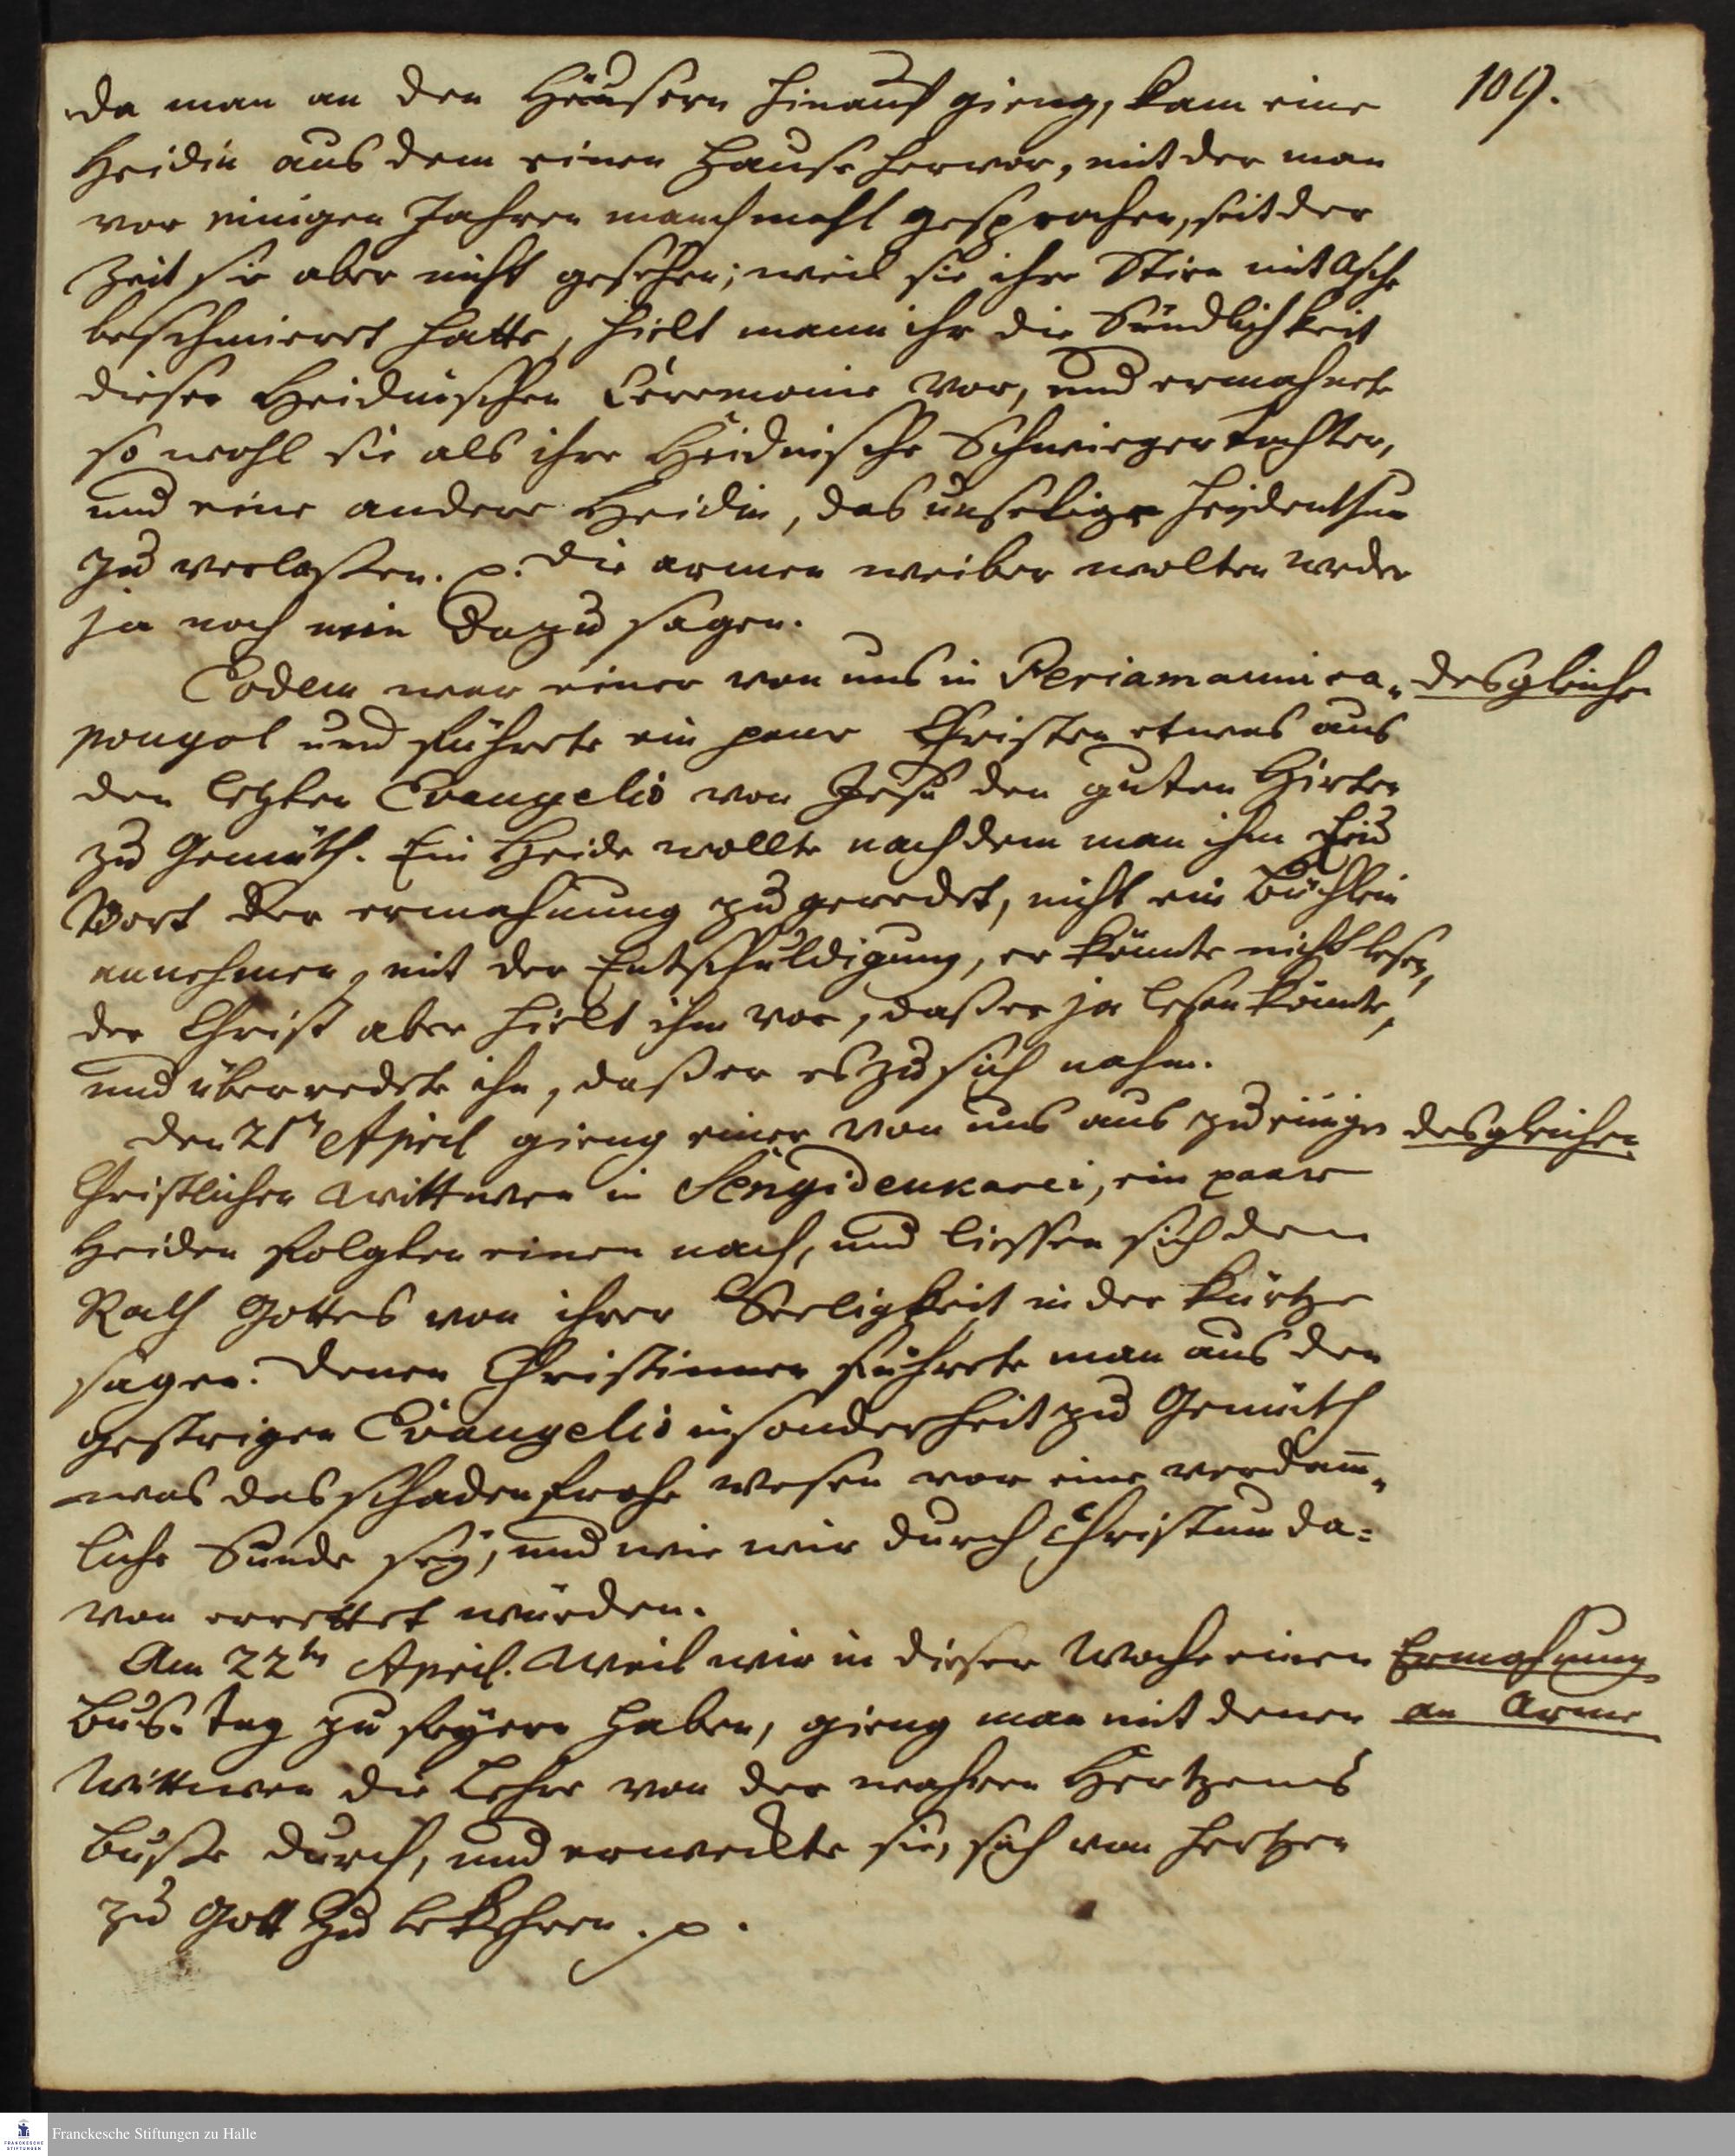 109.
da man an den Häusern hinauf gieng, kam eine
Heidin aus dem einen Hause hervor, mit der man
vor einigen Jahren manchmahl gesprochen, seit der
Zeit sie aber nicht gesehen; weil sie ihre Stirn mit Asche
beschmieret hatte, hielt mann ihr die Sündlichkeit
dieser Heidnischen Ceremonie vor, und ermahnete
so wohl sie als ihre Heidnische Schwiegertochter,
und eine andere Heidin, das unselige Heydenthum
zu verlaßen. p. die armen weiber wolten weder
ja noch nein dazu sagen.
Eodem war einer von uns in Periamanica„
desgleichen
pongol und führete ein paar Christen etwas aus
den letzten Evangelio von Jesu den guten Hirten
zu Gemüth. Ein Heide wollte nach dem man ihm ein
Wort der ermahnung zu geredet, nicht ein Büchlein
annehmen, mit der Entschuldigung, er könnte nicht lesen,
der Christ aber hielt ihm vor, daß er ja lesen könnte,
und überredete ihn, daß er es zu sich nahm.
den 21tn April gieng einer von uns aus zu einigen
desgleichen
Christlichen Wittwen in Sengidenkarei, ein paar
Heiden folgten einen nach, und liessen sich den
Rath Gottes von ihrer Seeligkeit in der kürtze
sagen. denen Christinnen führete man aus den
gestrigen Evangelio insonderheit zu Gemüth
was das schadenfrohe wesen vor eine verdam̅„
liche Sünde sey, und wie wir durch Christum da=
von errettet würden.
Am 22tn April. Weil wir in dieser Woche einen
Ermahnung
Buß-Tag zu feyern haben, gieng man mit denen
an Arme
Wittwen die Lehre von der wahren Hertzens
Buße durch, und erweckte sie, sich von Hertzen
zu Gott zu bekehren. p.
Franckesche Stiftungen zu Halle